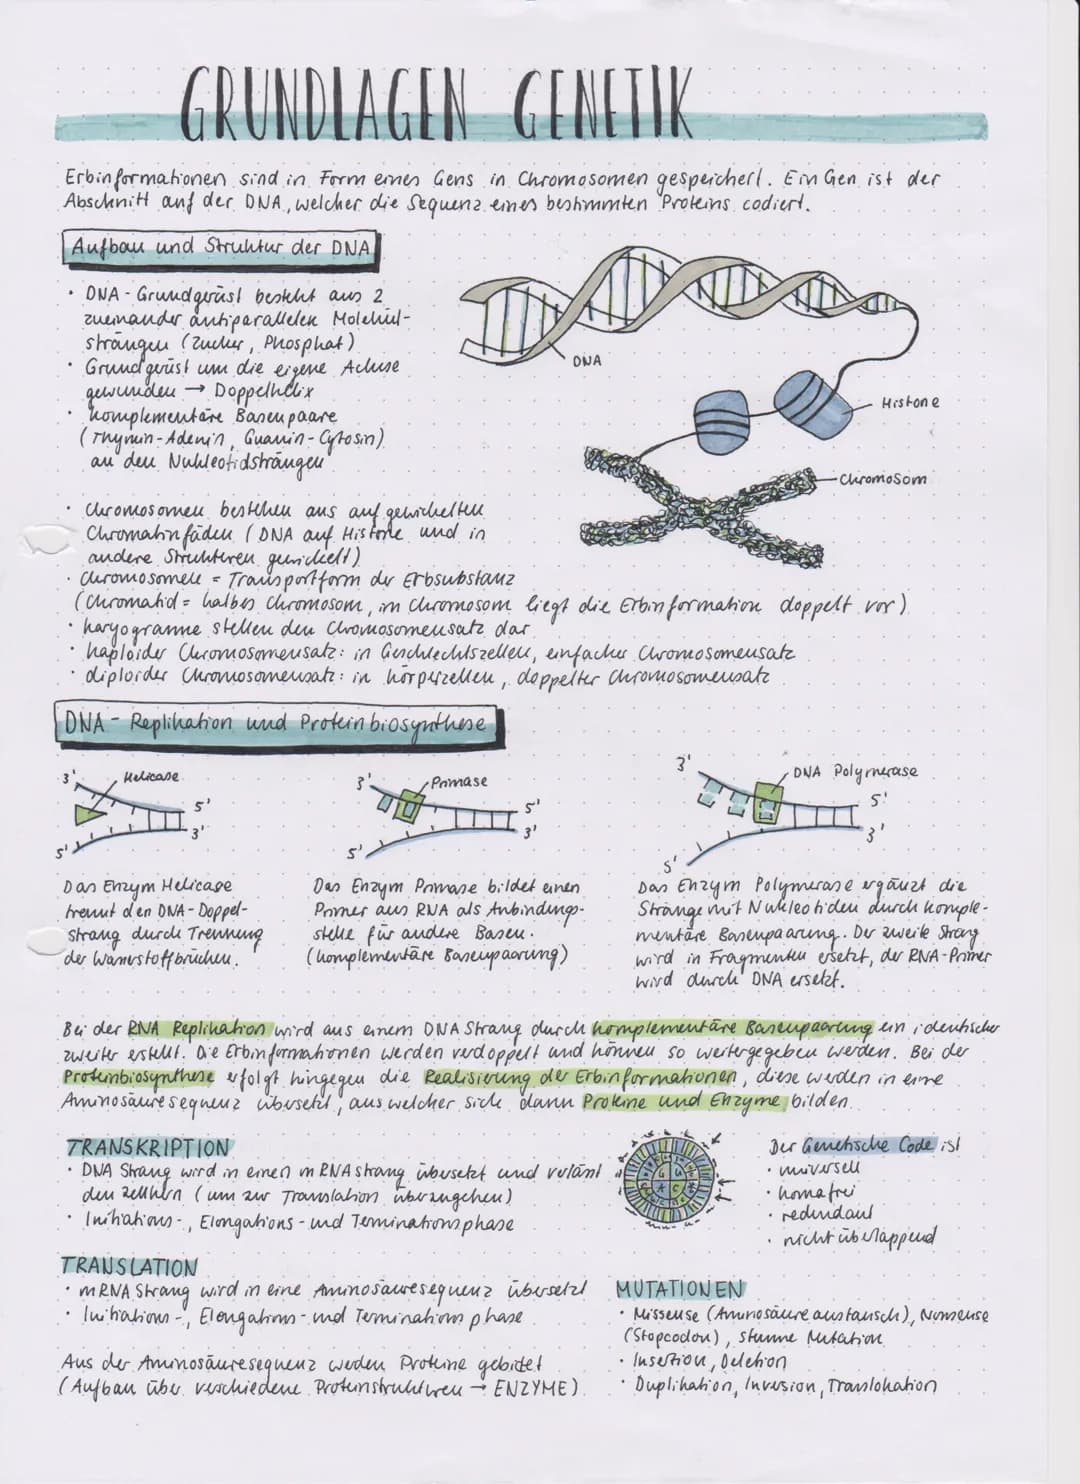 GRUNDLAGEN GENETIK
Erbinformationen sind in Form eines Gens in Chromosomen gespeichert. Ein Gen ist der
Abschnitt auf der DNA, welcher die Sequenz eines bestimmten Proteins codiert.
Aufbau und Struktur der DNA
• DNA-Grundgerüst besteht aus 2
zueinander antiparallelen Molekül-
strängen (Zucker, Phosphat)
• Grundgerüst um die eigene Achse
gewunden → Doppelhelix
• komplementäre Basenpaare
(Thymin-Adenin, Guanin-Cytosin)
an den Nukleotidsträngen
DNA
Histone
Chromosom
• Chromosomen bestehen aus aufgewickelten
Chromatinfäden (DNA auf Histone und in
andere Strukturen gewickelt)
• Chromosomen = Transportform der Erbsubstanz
(Chromatid = halbes Chromosom, im Chromosom liegt die Erbinformation doppelt vor)
• Karyogramme stellen den Chromosomensatz dar
• haploider Chromosomensatz: in Geschlechtszellen, einfacher Chromosomensatz
• diploider Chromosomensatz: in Körperzellen, doppelter Chromosomensatz
DNA-Replikation und Proteinbiosynthese
3' Helicase
5'
3'
5'
Das Enzym Helicase
trennt den DNA-Doppel-
strang durch Trennung
der Wasserstoffbrücken.
3' Primase
5'
3'
5'
Das Enzym Primase bildet einen
Primer aus RNA als Anbindungs-
stelle für andere Basen.
(komplementäre Basenpaarung)
3' DNA Polymerase
5'
3'
5'
Das Enzym Polymerase ergänzt die
Stränge mit Nukleotiden durch komple-
mentäre Basenpaarung. Der zweite Strang
wird in Fragmenten ersetzt, der RNA-Primer
wird durch DNA ersetzt.
Bei der RNA Replikation wird aus einem DNA Strang durch komplementäre Basenpaarung ein identischer
zweiter erstellt. Die Erbinformationen werden verdoppelt und können so weitergegeben werden. Bei der
Proteinbiosynthese erfolgt hingegen die Realisierung der Erbinformationen, diese werden in eine
Aminosäuresequenz übersetzt, aus welcher sich dann Proteine und Enzyme bilden.
TRANSKRIPTION
• DNA Strang wird in einen mRNA strang übersetzt und verlässt
den Zellkern (um zur Translation überzugehen)
• Initiations-, Elongations- und Terminationsphase
G U A C
Der Genetische Code ist
• universell
• kommafrei
• redundant
• nicht überlappend
TRANSLATION
• mRNA Strang wird in eine Aminosäuresequenz übersetzt
• Initiations-, Elongations- und Terminationsphase
Aus der Aminosäuresequenz werden Proteine gebildet
(Aufbau über verschiedene Proteinstrukturen → ENZYME)
MUTATIONEN
• Missense (Aminosäureaustausch), Nonsense
(Stopcodon), stumme Mutation
• Insertion, Deletion
• Duplikation, Inversion, Translokation